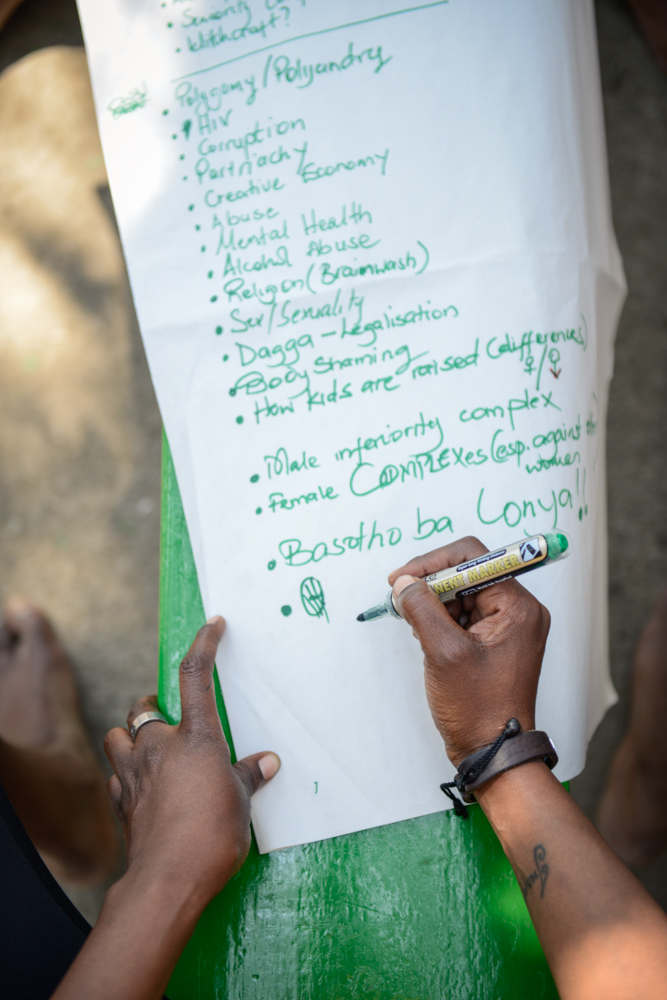 • Witchcraft?
• Polygamy/Polyandry
• HIV
• Corruption
• Partriachy
• Creative Economy
• Abuse
• Mental Health
• Alcohol Abuse
• Religion (Brainwash)
• Sex/Sexuality
• Dagga - Legalisation
• Body shaming
• How kids are raised (differences)
♀/♀
• Male inferiority complex
• Female COMPLEXes (esp. against
women
• Basotho ba Lonya!!
•
NENT MARKER